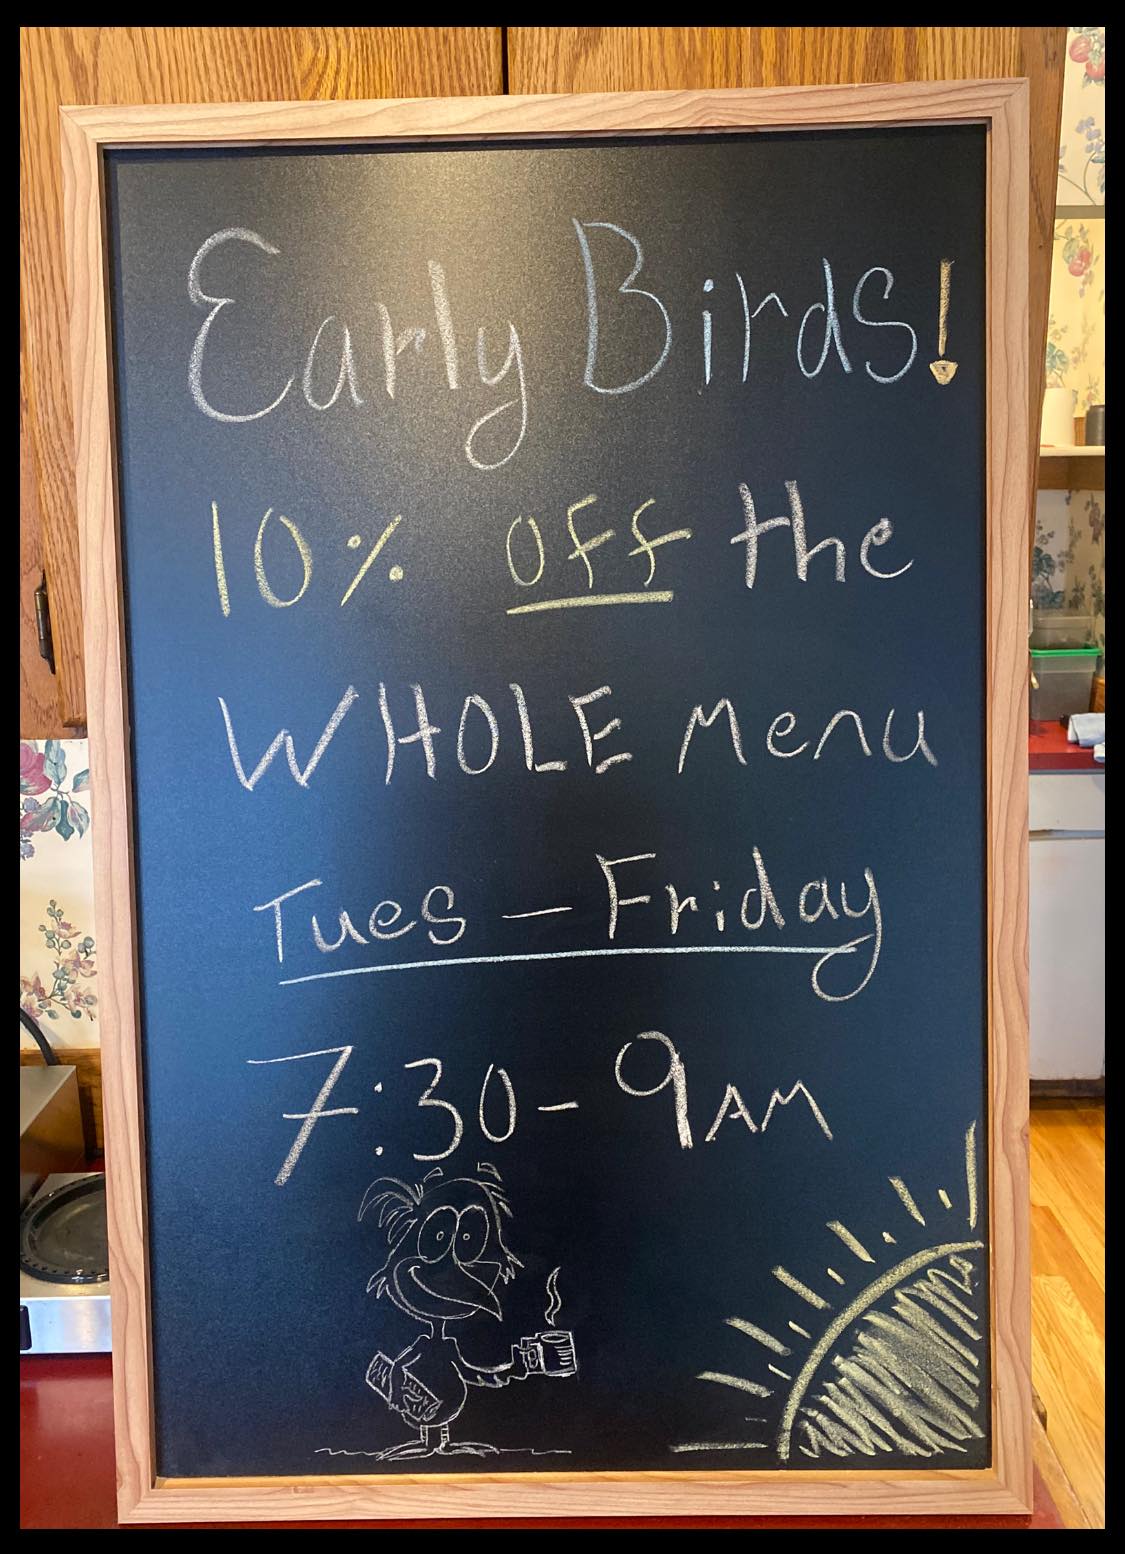 Early Birds!
10% off the
WHOLE Menu
Tues - Friday
7:30 - 9 AM